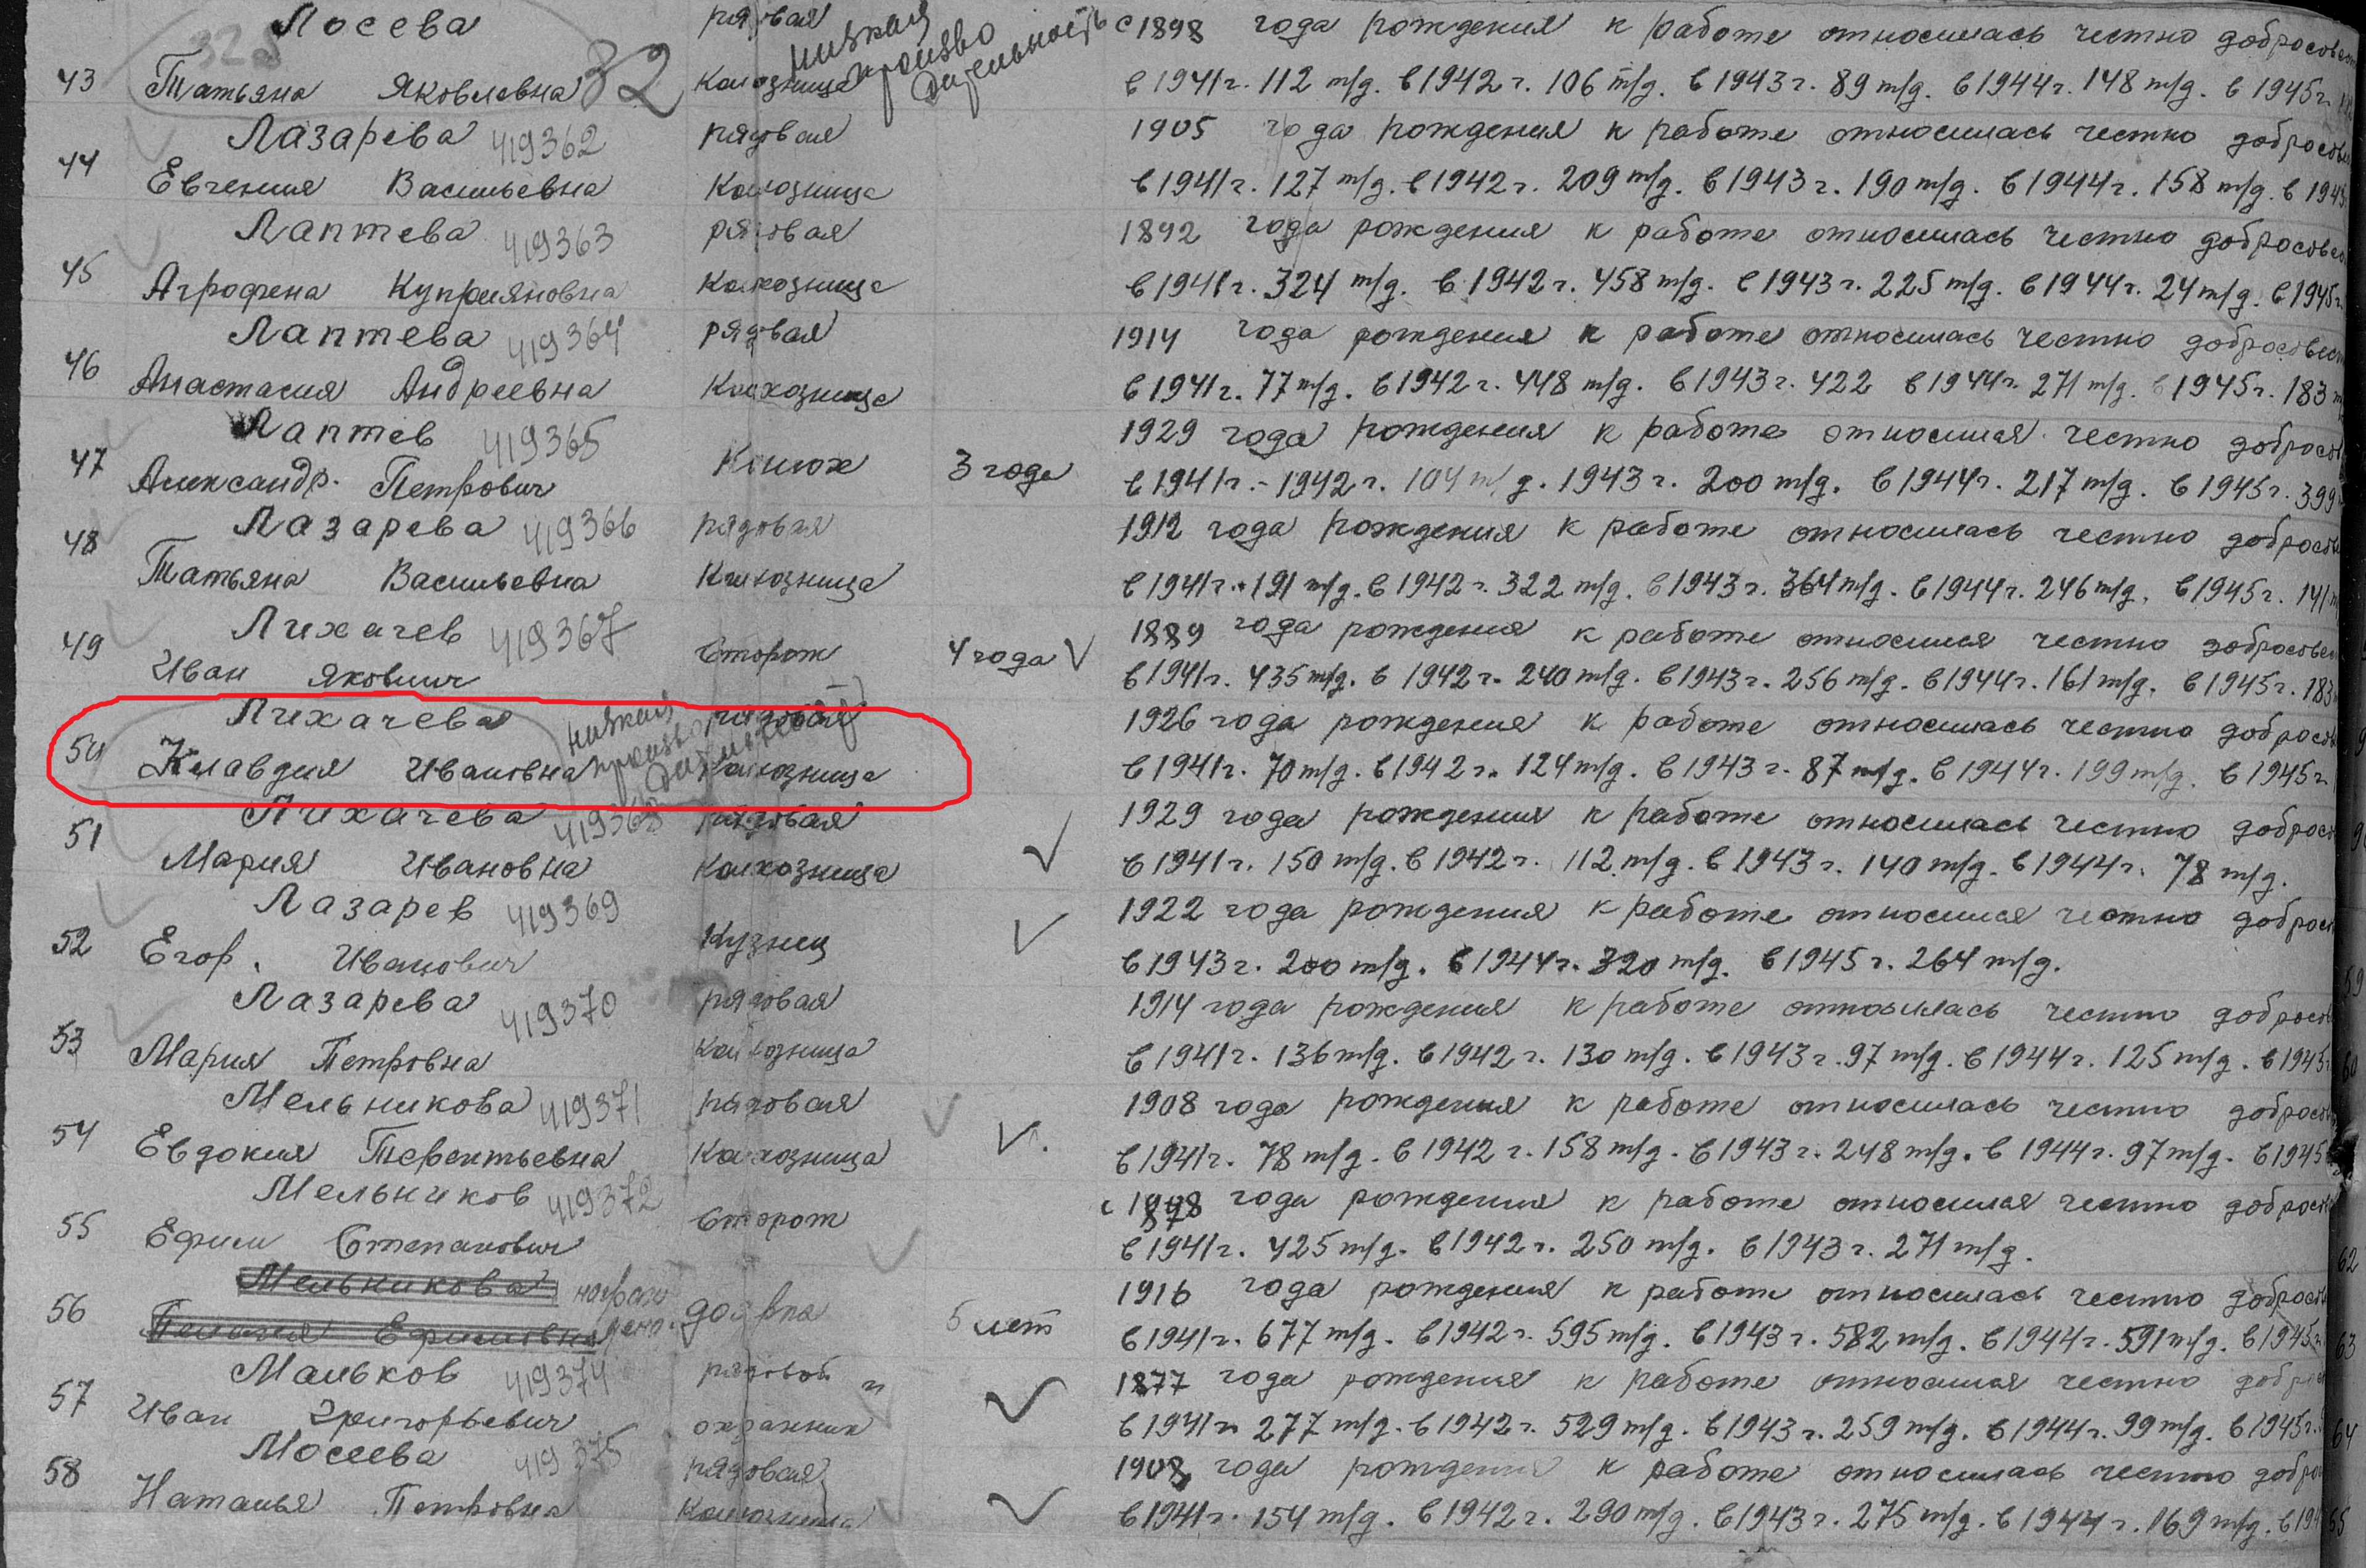 Лосева рядовая низкая с 1898 года рождения к работе относилась честно добросовест
43 Татьяна Яковлевна 32 колхозница произво дительность в 1941 г. 112 т/д. в 1942 г. 106 т/д. в 1943 г. 89 т/д. в 1944 г. 148 т/д. в 1945 г.
Лазарева 419362 рядовая 1905 года рождения к работе относилась честно добросове
44 Евгения Васильевна колхозница в 1941 г. 127 т/д. в 1942 г. 209 т/д. в 1943 г. 190 т/д. в 1944 г. 158 т/д. в 1945
Лаптева 419363 рядовая 1892 года рождения к работе относилась честно добросовес
45 Аграфена Куприяновна колхозница в 1941 г. 324 т/д. в 1942 г. 458 т/д. в 1943 г. 225 т/д. в 1944 г. 24 т/д. в 1945 г.
Лаптева 419364 рядовая 1914 года рождения к работе относилась честно добросовест
46 Анастасия Андреевна колхозница в 1941 г. 77 т/д. в 1942 г. 448 т/д. в 1943 г. 422 в 1944 г. 271 т/д. в 1945 г. 183
Лаптев 419365 1929 года рождения к работе относился честно добросов
47 Александр. Петрович Конюх 3 года в 1941 г. - 1942 г. 104 т/д. 1943 г. 200 т/д. в 1944 г. 217 т/д. в 1945 г. 399
Лазарева 419366 рядовая 1912 года рождения к работе относилась честно добросов
48 Татьяна Васильевна колхозница в 1941 г. 191 т/д. в 1942 г. 322 т/д. в 1943 г. 364 т/д. в 1944 г. 246 т/д. в 1945 г. 141
Лихачев 419367 1889 года рождения к работе относился честно добросовес
49 Иван Яковлич Сторож 4 года в 1941 г. 435 т/д. в 1942 г. 240 т/д. в 1943 г. 256 т/д. в 1944 г. 161 т/д. в 1945 г. 183
Лихачева низкая рядовая 1926 года рождения к работе относилась честно добросов
50 Клавдия Ивановна производительность колхозница в 1941 г. 70 т/д. в 1942 г. 124 т/д. в 1943 г. 87 т/д. в 1944 г. 199 т/д. в 1945 г
Лихачева 419368 рядовая 1929 года рождения к работе относилась честно добросо
51 Мария Ивановна колхозница в 1941 г. 150 т/д. в 1942 г. 112 т/д. в 1943 г. 140 т/д. в 1944 г. 78 т/д.
Лазарев 419369 1922 года рождения к работе относился честно доброс
52 Егор. Иванович Кузнец в 1943 г. 200 т/д. в 1944 г. 320 т/д. в 1945 г. 264 т/д.
Лазарева 419370 рядовая 1914 года рождения к работе относилась честно добросов
53 Мария Петровна колхозница в 1941 г. 136 т/д. в 1942 г. 130 т/д. в 1943 г. 97 т/д. в 1944 г. 125 т/д. в 1945 г
Мельникова 419371 рядовая 1908 года рождения к работе относилась честно добросов
54 Евдокия Терентьевна колхозница в 1941 г. 78 т/д. в 1942 г. 158 т/д. в 1943 г. 248 т/д. в 1944 г. 97 т/д. в 1945
Мельников 419372 с 1878 года рождения к работе относился честно добросо
55 Ефим Степанович Сторож в 1941 г. 425 т/д. в 1942 г. 250 т/д. в 1943 г. 271 т/д.
Мельникова 1916 года рождения к работе относилась честно добросов
56 Пелагея Ефимовна доярка 5 лет в 1941 г. 677 т/д. в 1942 г. 595 т/д. в 1943 г. 582 т/д. в 1944 г. 591 т/д. в 1945 г. 63
Мальков 419374 рядовой и 1877 года рождения к работе относился честно добро
57 Иван Григорьевич охранник в 1941 г. 277 т/д. в 1942 г. 529 т/д. в 1943 г. 259 т/д. в 1944 г. 99 т/д. в 1945 г. 64
Мосеева 419375 рядовая 1908 года рождения к работе относилась честно добро
58 Наталья Петровна колхозница в 1941 г. 154 т/д. в 1942 г. 290 т/д. в 1943 г. 275 т/д. в 1944 г. 169 т/д. в 194 65